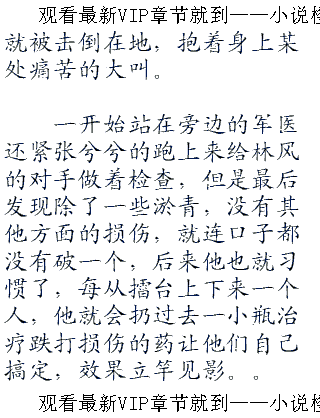 观看最新VIP章节就到——小说检
就被击倒在地，抱着身上某
处痛苦的大叫。
一开始站在旁边的军医
还紧张兮兮的跑上来给林风
的对手做着检查，但是最后
发现除了一些淤青，没有其
他方面的损伤，就连口子都
没有破一个，后来他也就习
惯了，每从擂台上下来一个
人，他就会扔过去一小瓶治
疗跌打损伤的药让他们自己
搞定，效果立竿见影。。
观看最新VIP章节就到——小说检